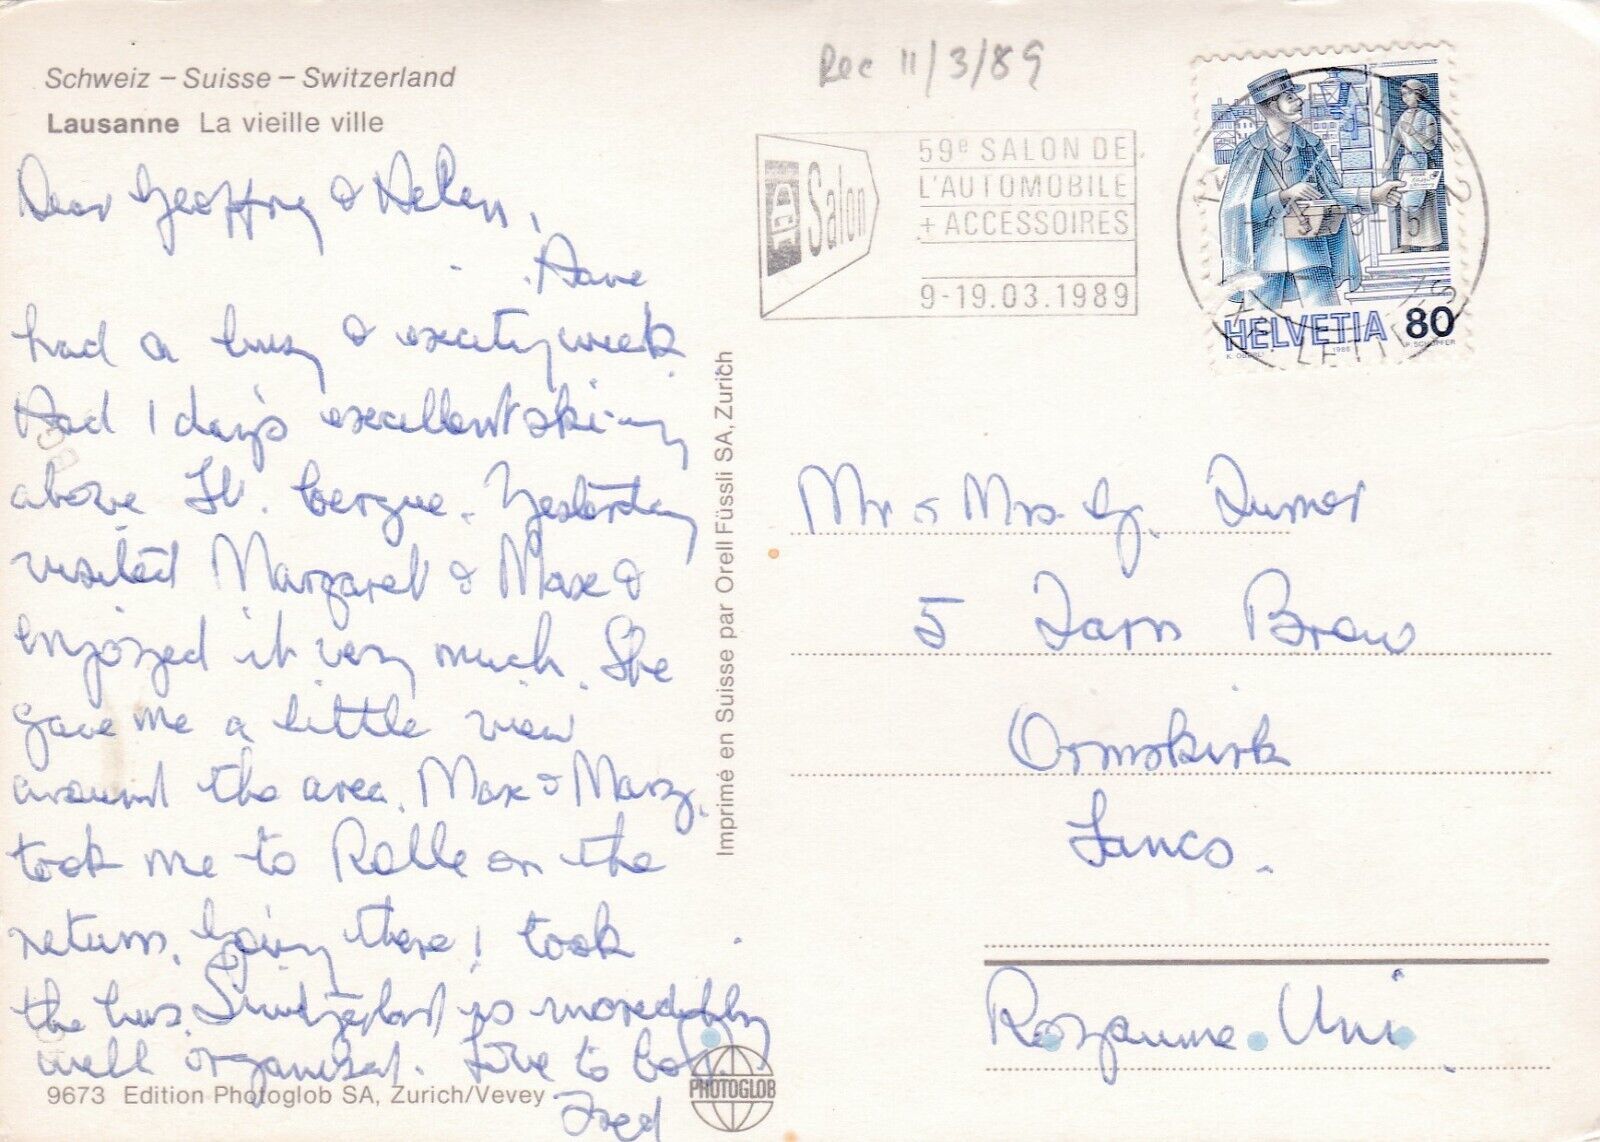 Schweiz – Suisse – Switzerland
Lausanne La vieille ville
Dear Geoffrey & Helen,
Have
had a busy & exciting week
Had 1 day's excellent skiing
above St. Cergue. Yesterday
visited Margaret & Max &
enjoyed it very much. She
gave me a little view
around the area. Max & Marg.
took me to Rolle on the
return. Going there I took
the bus. Switzerland is incredibly
well organised. Love to both
Fred
9673 Edition Photoglob SA, Zurich/Vevey
PHOTOGLOB
Imprimé en Suisse par Orell Füssli SA, Zurich
Rec 11/3/89
Salon
59e SALON DE
L'AUTOMOBILE
+ ACCESSOIRES
9-19.03.1989
HELVETIA 80
K. OBERLI 1986 P. SCHOPFER
Mr & Mrs. G.
5 Brow
Ormskirk
Lancs.
Uni.